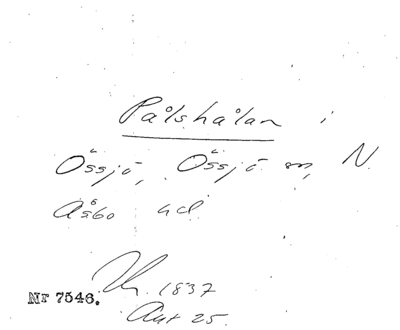 Pålshålan i
Össjö, Össjö sn, N.
Åsbo hd
1837
Nr 7546.
Ant 25.